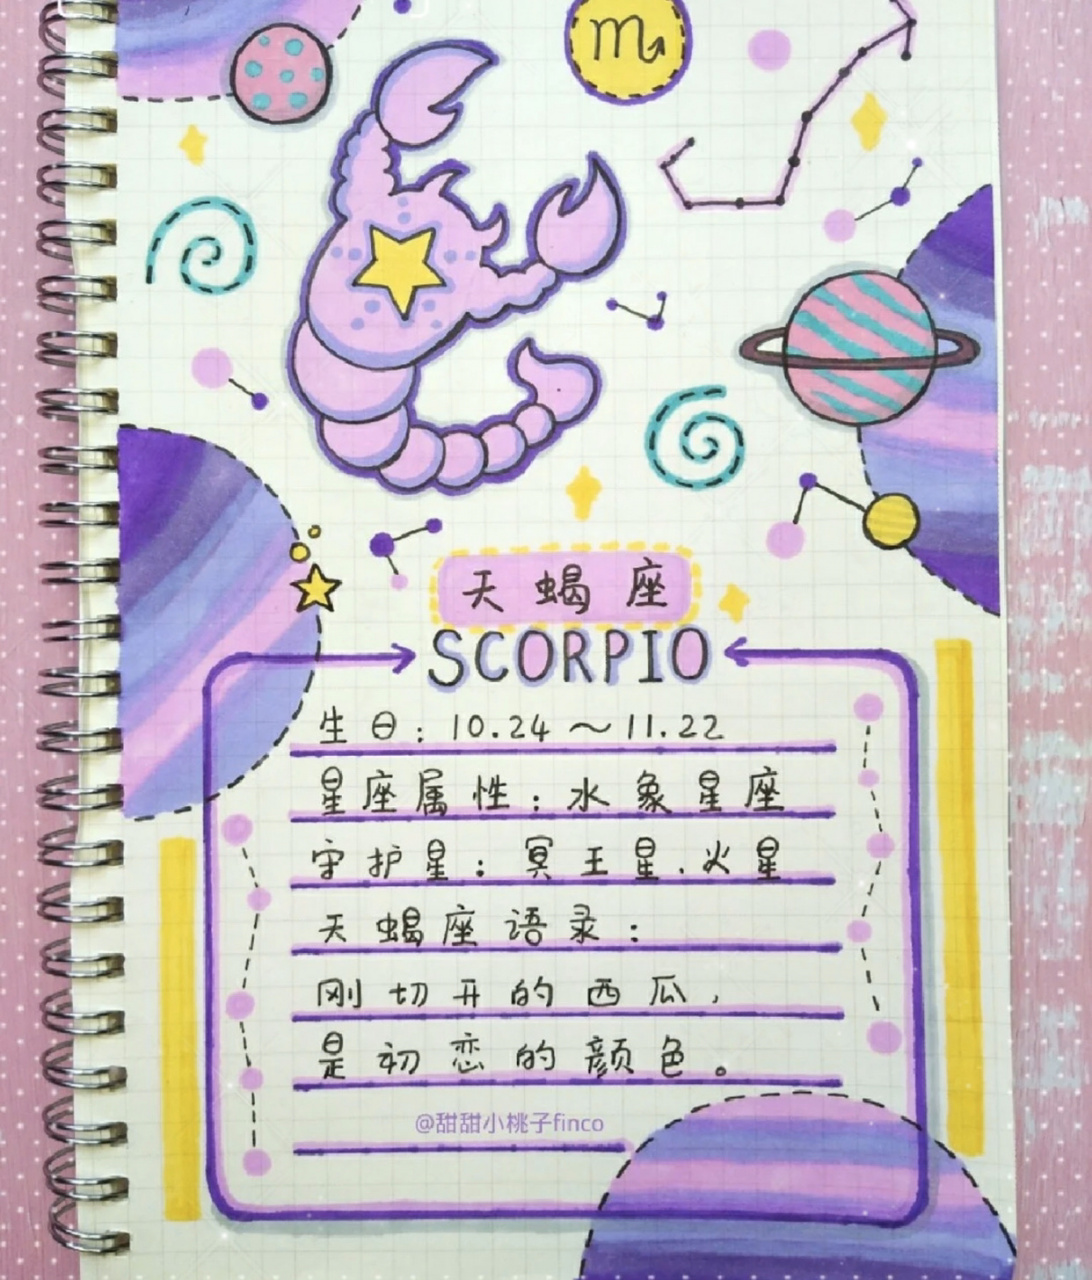 天蝎座
SCORPIO
生日：10.24～11.22
星座属性：水象星座
守护星：冥王星.火星
天蝎座语录：
刚切开的西瓜，
是初恋的颜色。
@甜甜小桃子finco